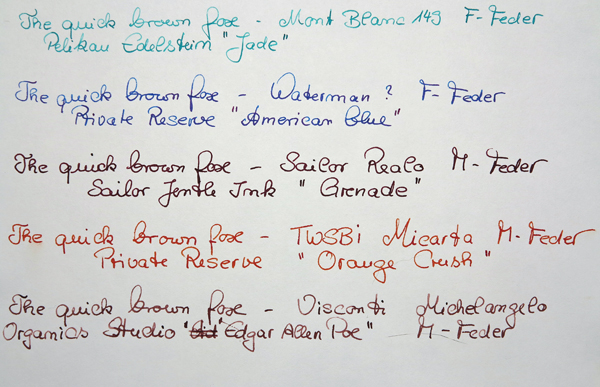 The quick brown fox - Mont Blanc 149 F-Feder
Pelikan Edelstein "Jade"
The quick brown fox - Waterman ? F-Feder
Private Reserve "American blue"
The quick brown fox - Sailor Realo M-Feder
Sailor Jentle Ink "Grenade"
The quick brown fox - TWSBi Micarta M-Feder
Private Reserve "Orange Crush"
The quick brown fox - Visconti Michelangelo
Organics Studio "Edgar Allen Poe" M-Feder